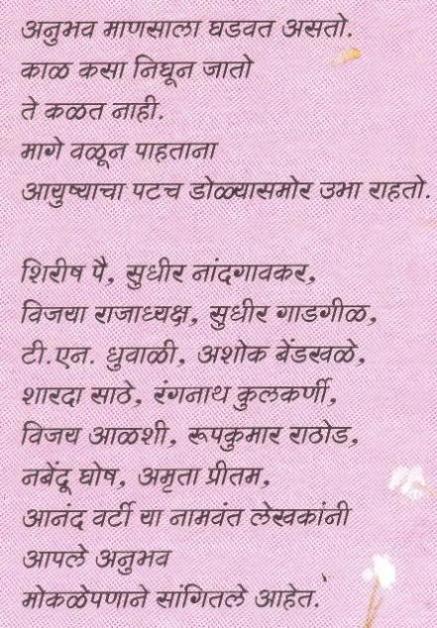 अनुभव माणसाला घडवत असतो.
काळ कसा निघून जातो
ते कळत नाही.
मागे वळून पाहताना
आयुष्याचा पटच डोळ्यासमोर उभा राहतो.
शिरीष पै, सुधीर नांदगावकर,
विजया राजाध्यक्ष, सुधीर गाडगीळ,
टी.एन. धुवाळी, अशोक बेंडखळे,
शारदा साठे, रंगनाथ कुलकर्णी,
विजय आळशी, रूपकुमार राठोड,
नबेंदू घोष, अमृता प्रीतम,
आनंद वर्टी या नामवंत लेखकांनी
आपले अनुभव
मोकळेपणाने सांगितले आहेत.